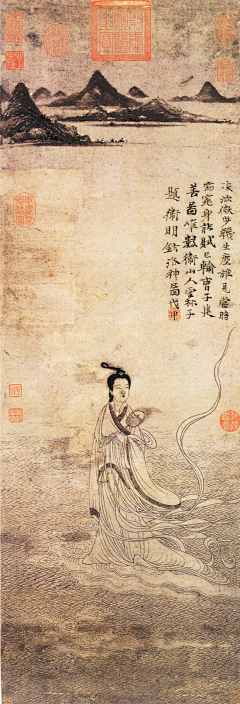 凌波微步韈生塵誰見當時
窈窕身能賦已輸曹子建
善圖唯數衛山人雲林子
題衛明鉉洛神圖戊申